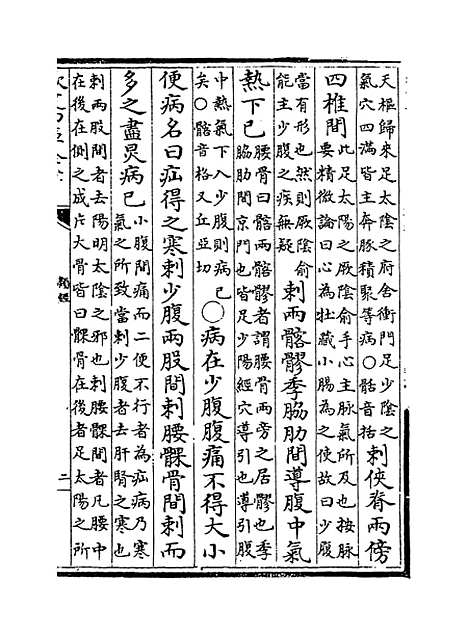 天樞歸來足太陰之府舍衝門足少陰之
氣穴四滿皆主奔豚積聚等病○䯏音括
刺俠脊兩傍
四椎間
此足太陽之厥陰俞手心主脉氣所及也按脉
要精微論曰心為牡藏小腸為之使故曰少腹
當有形也然則厥陰俞
能主少腹之疾無疑
刺兩髂髎季脇肋間導腹中氣
熱下已
腰骨曰髂兩髂髎者謂腰骨兩旁之居髎也季
脇肋間京門也皆足少陽經穴導引也導引腹
中熱氣下入少腹則病已
矣○髂音格又丘亞切
○病在少腹腹痛不得大小
便病名曰疝得之寒刺少腹兩股間刺腰髁骨間刺而
多之盡炅病已
小腹間痛而二便不行者為疝病乃寒
氣之所致當刺少腹者去肝腎之寒也
刺兩股間者去陽明太陰之邪也刺腰髁間者凡腰中
在後在側之成片大骨皆曰髁骨在後者足太陽之所
類經
二